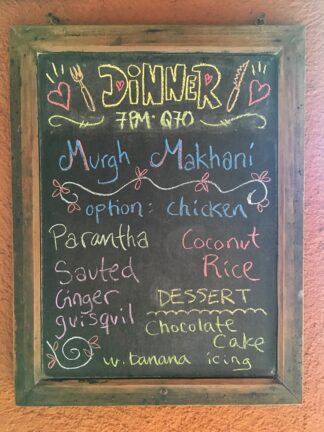 DINNER
7PM · Q70
Murgh Makhani
option: chicken
Parantha
Sauted
Ginger
guisquil
Coconut
Rice
DESSERT
Chocolate
Cake
w. banana icing